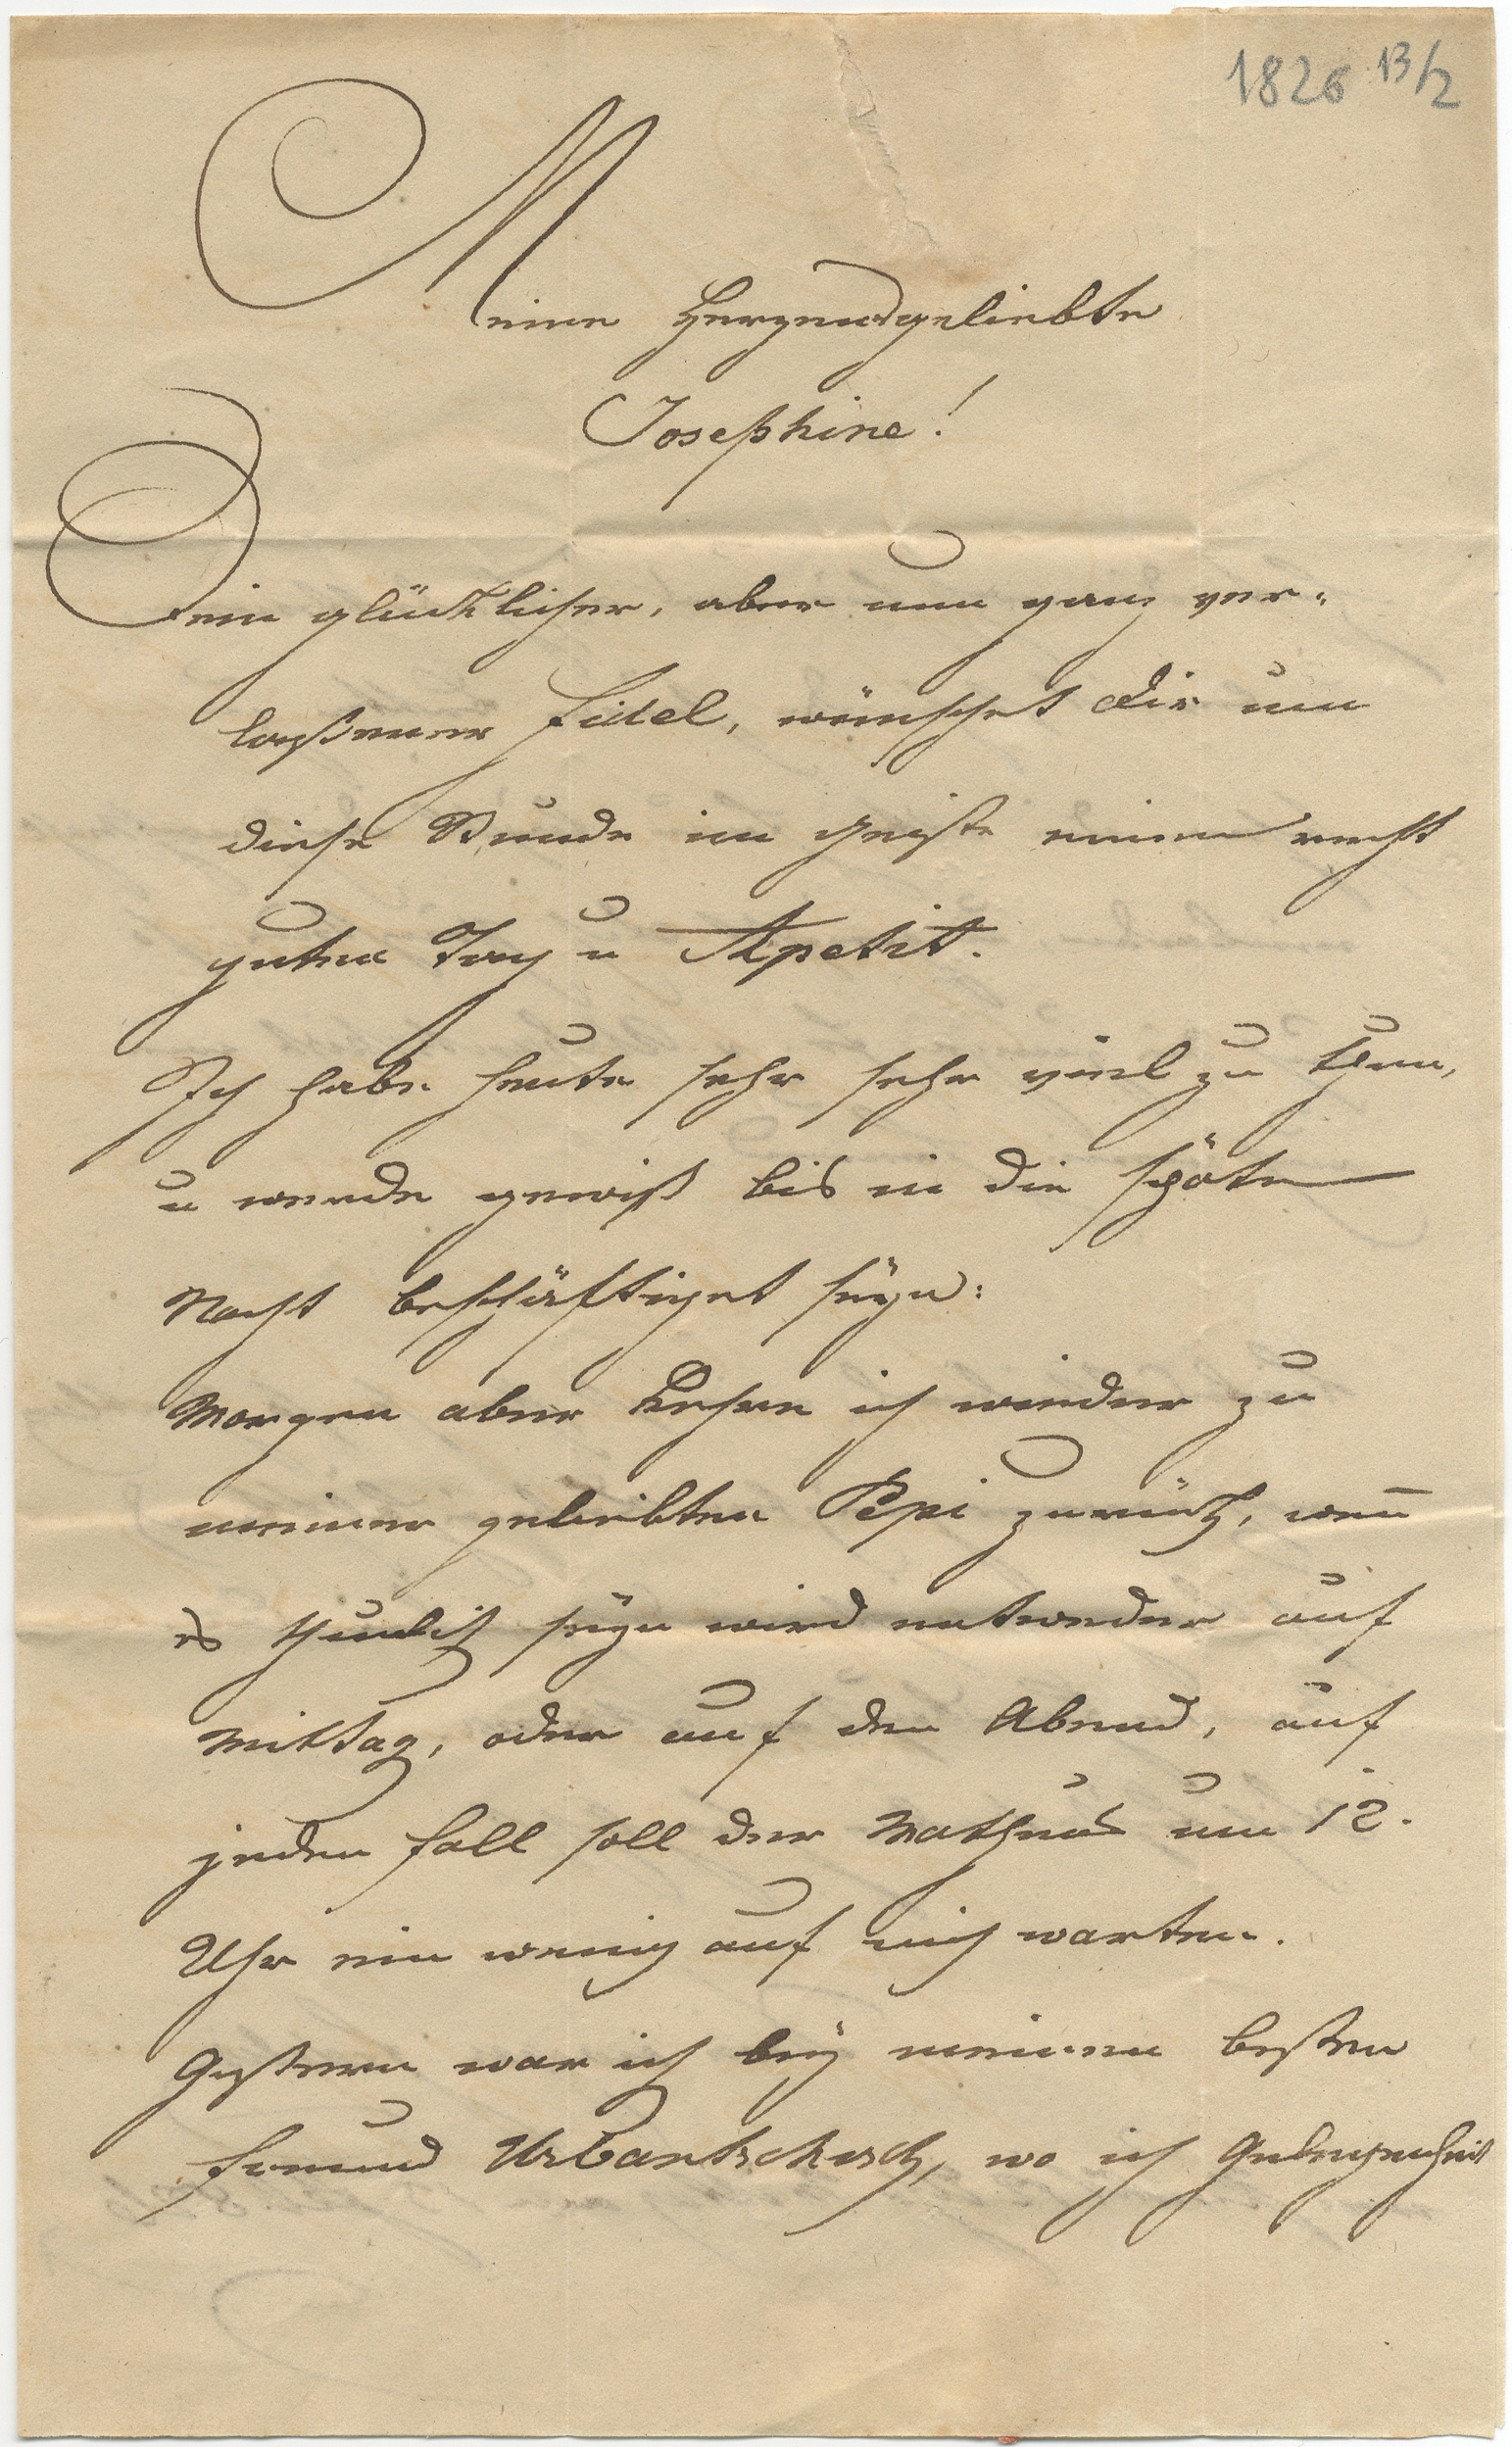 1826 13/2
Meine Herzensgeliebte
Josephine!
Dein glücklicher, aber nun ganz ver-
laßener Fidel, wünschet Dir um
diese Stunde im Geiste einen recht
guten Tag u Apetit.
Ich habe heute sehr sehr viel zu thun,
u werde gewiß bis in die späte
Nacht beschäftiget seÿn:
Morgen aber kehre ich wieder zu
meiner geliebten Pepi zurück, wen̅
es thunlich seÿn wird entweder auf
Mittag, oder auf den Abend, auf
jeden Fall soll der Matheus um 12.
Uhr ein wenig auf mich warten.
Gestern war ich beÿ meinem besten
Freund Urbantschitsch, wo ich Gelegenheit